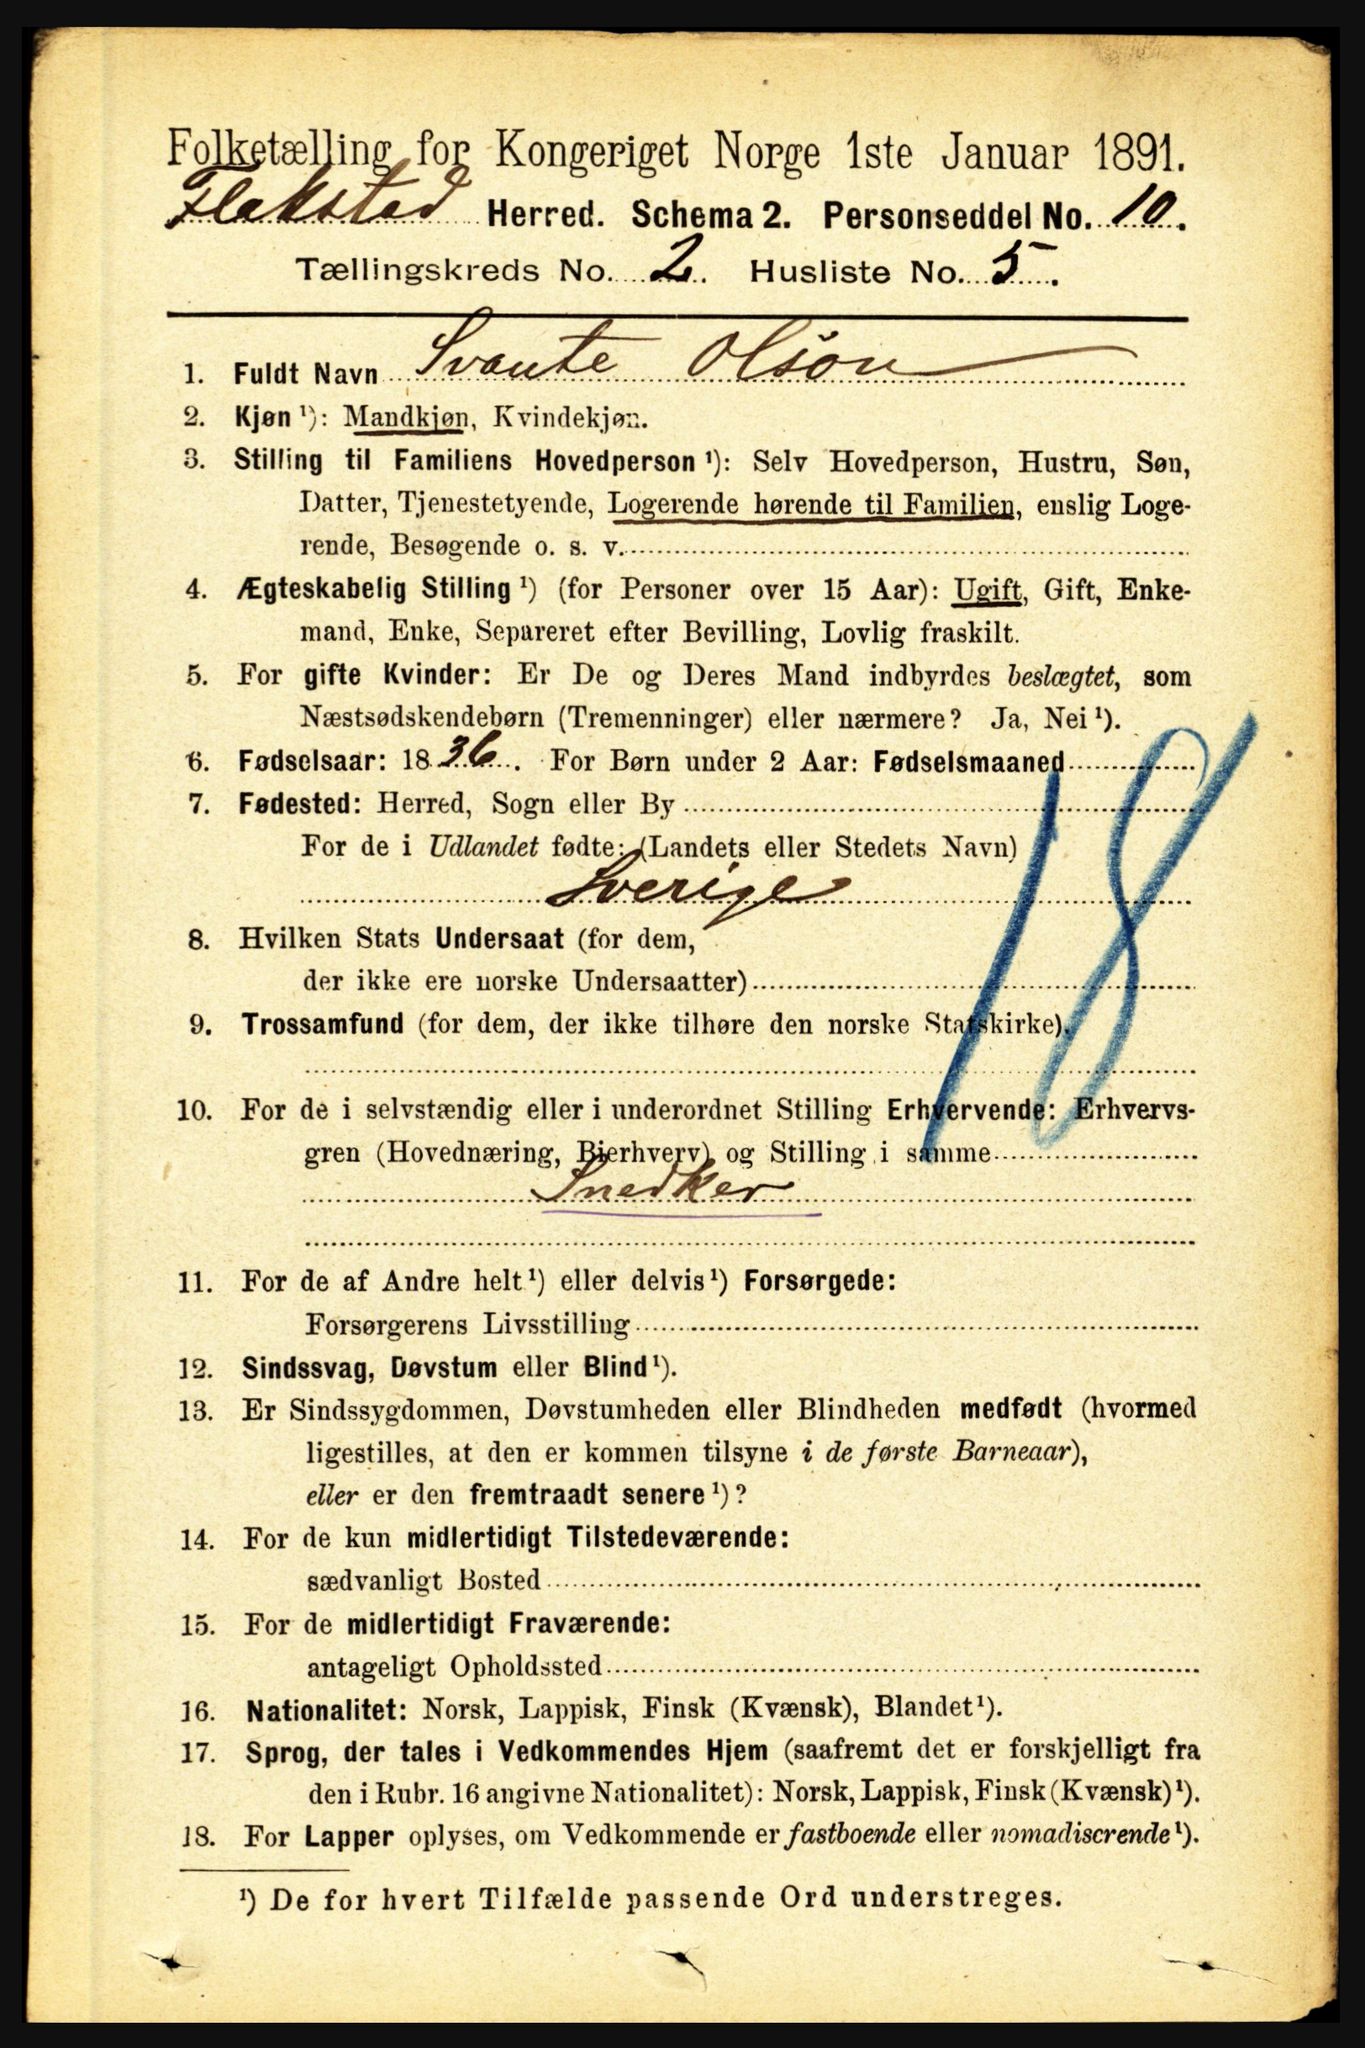 Folketælling for Kongeriget Norge 1ste Januar 1891.
Flakstad Herred. Schema 2. Personseddel No. 10.
Tællingskreds No. 2. Husliste No. 5.
1. Fuldt Navn Svante Olson
2. Kjøn ¹): Mandkjøn, Kvindekjøn.
3. Stilling til Familiens Hovedperson ¹): Selv Hovedperson, Hustru, Søn,
Datter, Tjenestetyende, Logerende hørende til Familien, enslig Loge-
rende, Besøgende o. s. v.
4. Ægteskabelig Stilling ¹) (for Personer over 15 Aar): Ugift, Gift, Enke-
mand, Enke, Separeret efter Bevilling, Lovlig fraskilt.
5. For gifte Kvinder: Er De og Deres Mand indbyrdes beslægtet, som
Næstsødskendebørn (Tremenninger) eller nærmere? Ja, Nei ¹).
6. Fødselsaar: 1836. For Børn under 2 Aar: Fødselsmaaned
7. Fødested: Herred, Sogn eller By
For de i Udlandet fødte: (Landets eller Stedets Navn)
Sverige
18
8. Hvilken Stats Undersaat (for dem,
der ikke ere norske Undersaatter)
9. Trossamfund (for dem, der ikke tilhøre den norske Statskirke).
10. For de i selvstændig eller i underordnet Stilling Erhvervende: Erhvervs-
gren (Hovednæring, Bierhverv) og Stilling i samme
Snedker
11. For de af Andre helt ¹) eller delvis ¹) Forsørgede:
Forsørgerens Livsstilling
12. Sindssvag, Døvstum eller Blind ¹).
13. Er Sindssygdommen, Døvstumheden eller Blindheden medfødt (hvormed
ligestilles, at den er kommen tilsyne i de første Barneaar),
eller er den fremtraadt senere ¹)?
14. For de kun midlertidigt Tilstedeværende:
sædvanligt Bosted
15. For de midlertidigt Fraværende:
antageligt Opholdssted
16. Nationalitet: Norsk, Lappisk, Finsk (Kvænsk), Blandet ¹).
17. Sprog, der tales i Vedkommendes Hjem (saafremt det er forskjelligt fra
den i Rubr. 16 angivne Nationalitet): Norsk, Lappisk, Finsk (Kvænsk) ¹).
18. For Lapper oplyses, om Vedkommende er fastboende eller nomadiserende ¹).
¹) De for hvert Tilfælde passende Ord understreges.